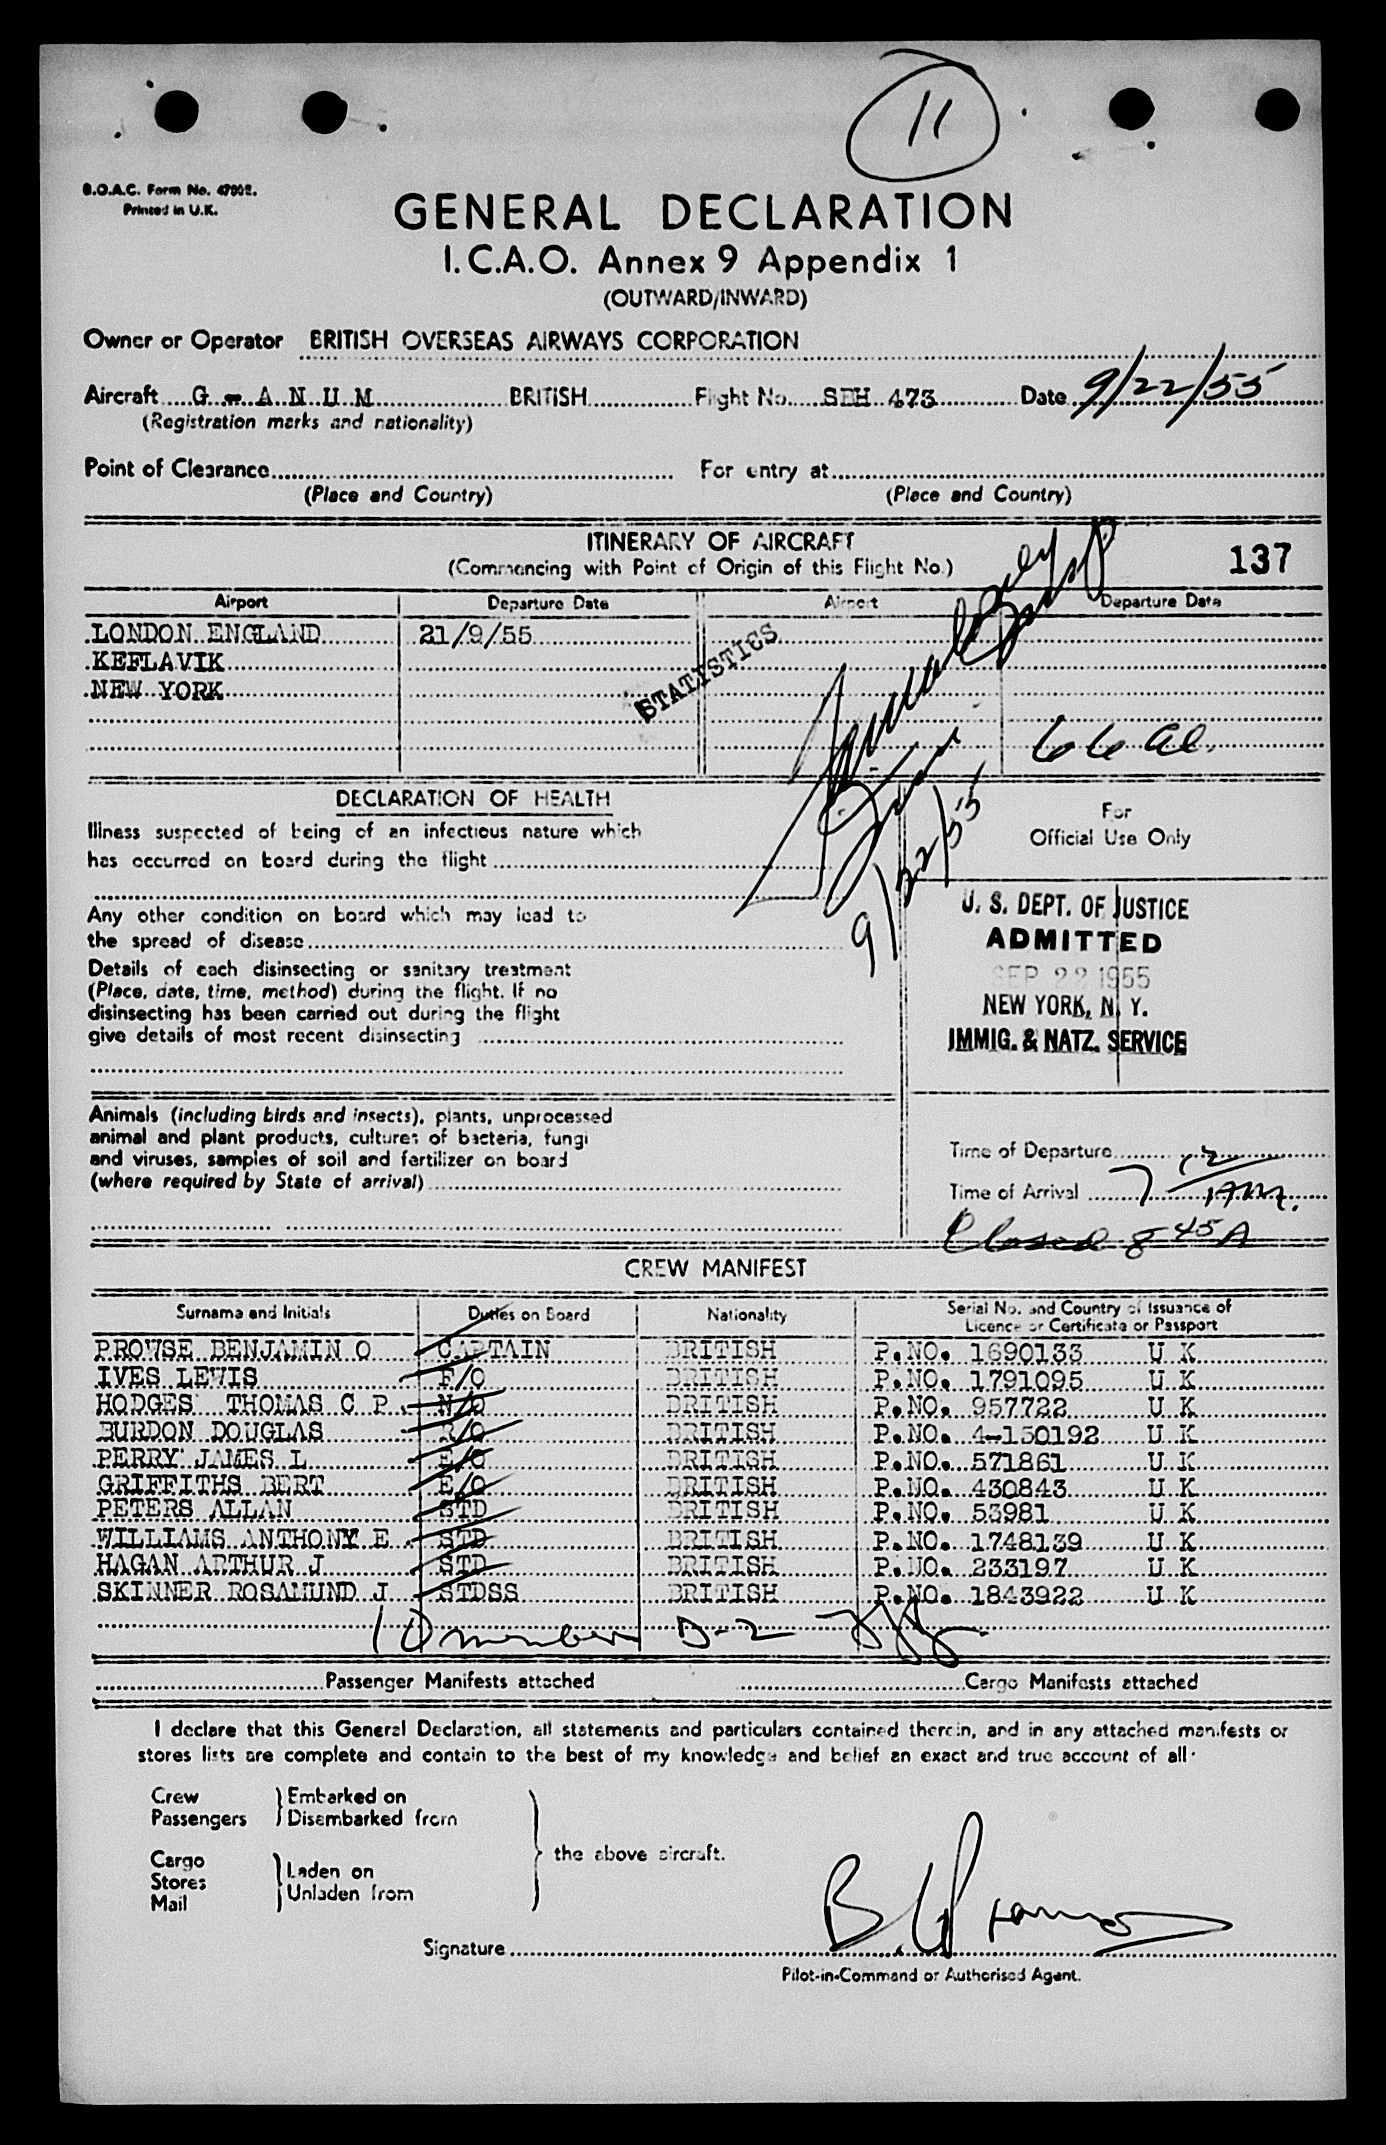 11
B.O.A.C. Form No. 47902.
Printed in U.K.
GENERAL DECLARATION
I.C.A.O. Annex 9 Appendix 1
(OUTWARD/INWARD)
Owner or Operator BRITISH OVERSEAS AIRWAYS CORPORATION
Aircraft G - A N U M BRITISH Flight No. SEH 473 Date 9/22/55
(Registration marks and nationality)
Point of Clearance For entry at
(Place and Country) (Place and Country)
ITINERARY OF AIRCRAFT
(Commencing with Point of Origin of this Flight No.)
137
Airport Departure Date Airport Departure Date
LONDON ENGLAND 21/9/55
KEFLAVIK
NEW YORK
STATISTICS
66
DECLARATION OF HEALTH
Illness suspected of being of an infectious nature which
has occurred on board during the flight
Any other condition on board which may lead to
the spread of disease
Details of each disinsecting or sanitary treatment
(Place, date, time, method) during the flight. If no
disinsecting has been carried out during the flight
give details of most recent disinsecting
9/22/55
For
Official Use Only
U. S. DEPT. OF JUSTICE
ADMITTED
SEP 22 1955
NEW YORK, N. Y.
IMMIG. & NATZ. SERVICE
Animals (including birds and insects), plants, unprocessed
animal and plant products, cultures of bacteria, fungi
and viruses, samples of soil and fertilizer on board
(where required by State of arrival)
Time of Departure
Time of Arrival 7 12 AM.
Closed 8 45 A
CREW MANIFEST
Surname and Initials Duties on Board Nationality Serial No. and Country of Issuance of
Licence or Certificate or Passport
PROWSE BENJAMIN O CAPTAIN BRITISH P.NO. 1690133 U K
IVES LEWIS F/O BRITISH P.NO. 1791095 U K
HODGES THOMAS C P N/O BRITISH P.NO. 957722 U K
BURDON DOUGLAS R/O BRITISH P.NO. 4-150192 U K
PERRY JAMES L E/O BRITISH P.NO. 571861 U K
GRIFFITHS BERT E/O BRITISH P.NO. 430843 U K
PETERS ALLAN STD BRITISH P.NO. 53981 U K
WILLIAMS ANTHONY E STD BRITISH P.NO. 1748139 U K
HAGAN ARTHUR J STD BRITISH P.NO. 233197 U K
SKINNER ROSAMUND J STDSS BRITISH P.NO. 1843922 U K
10 members D-2
Passenger Manifests attached Cargo Manifests attached
I declare that this General Declaration, all statements and particulars contained therein, and in any attached manifests or
stores lists are complete and contain to the best of my knowledge and belief an exact and true account of all
Crew Embarked on
Passengers Disembarked from
the above aircraft.
Cargo Laden on
Stores
Mail Unladen from
Signature
Pilot-in-Command or Authorised Agent.